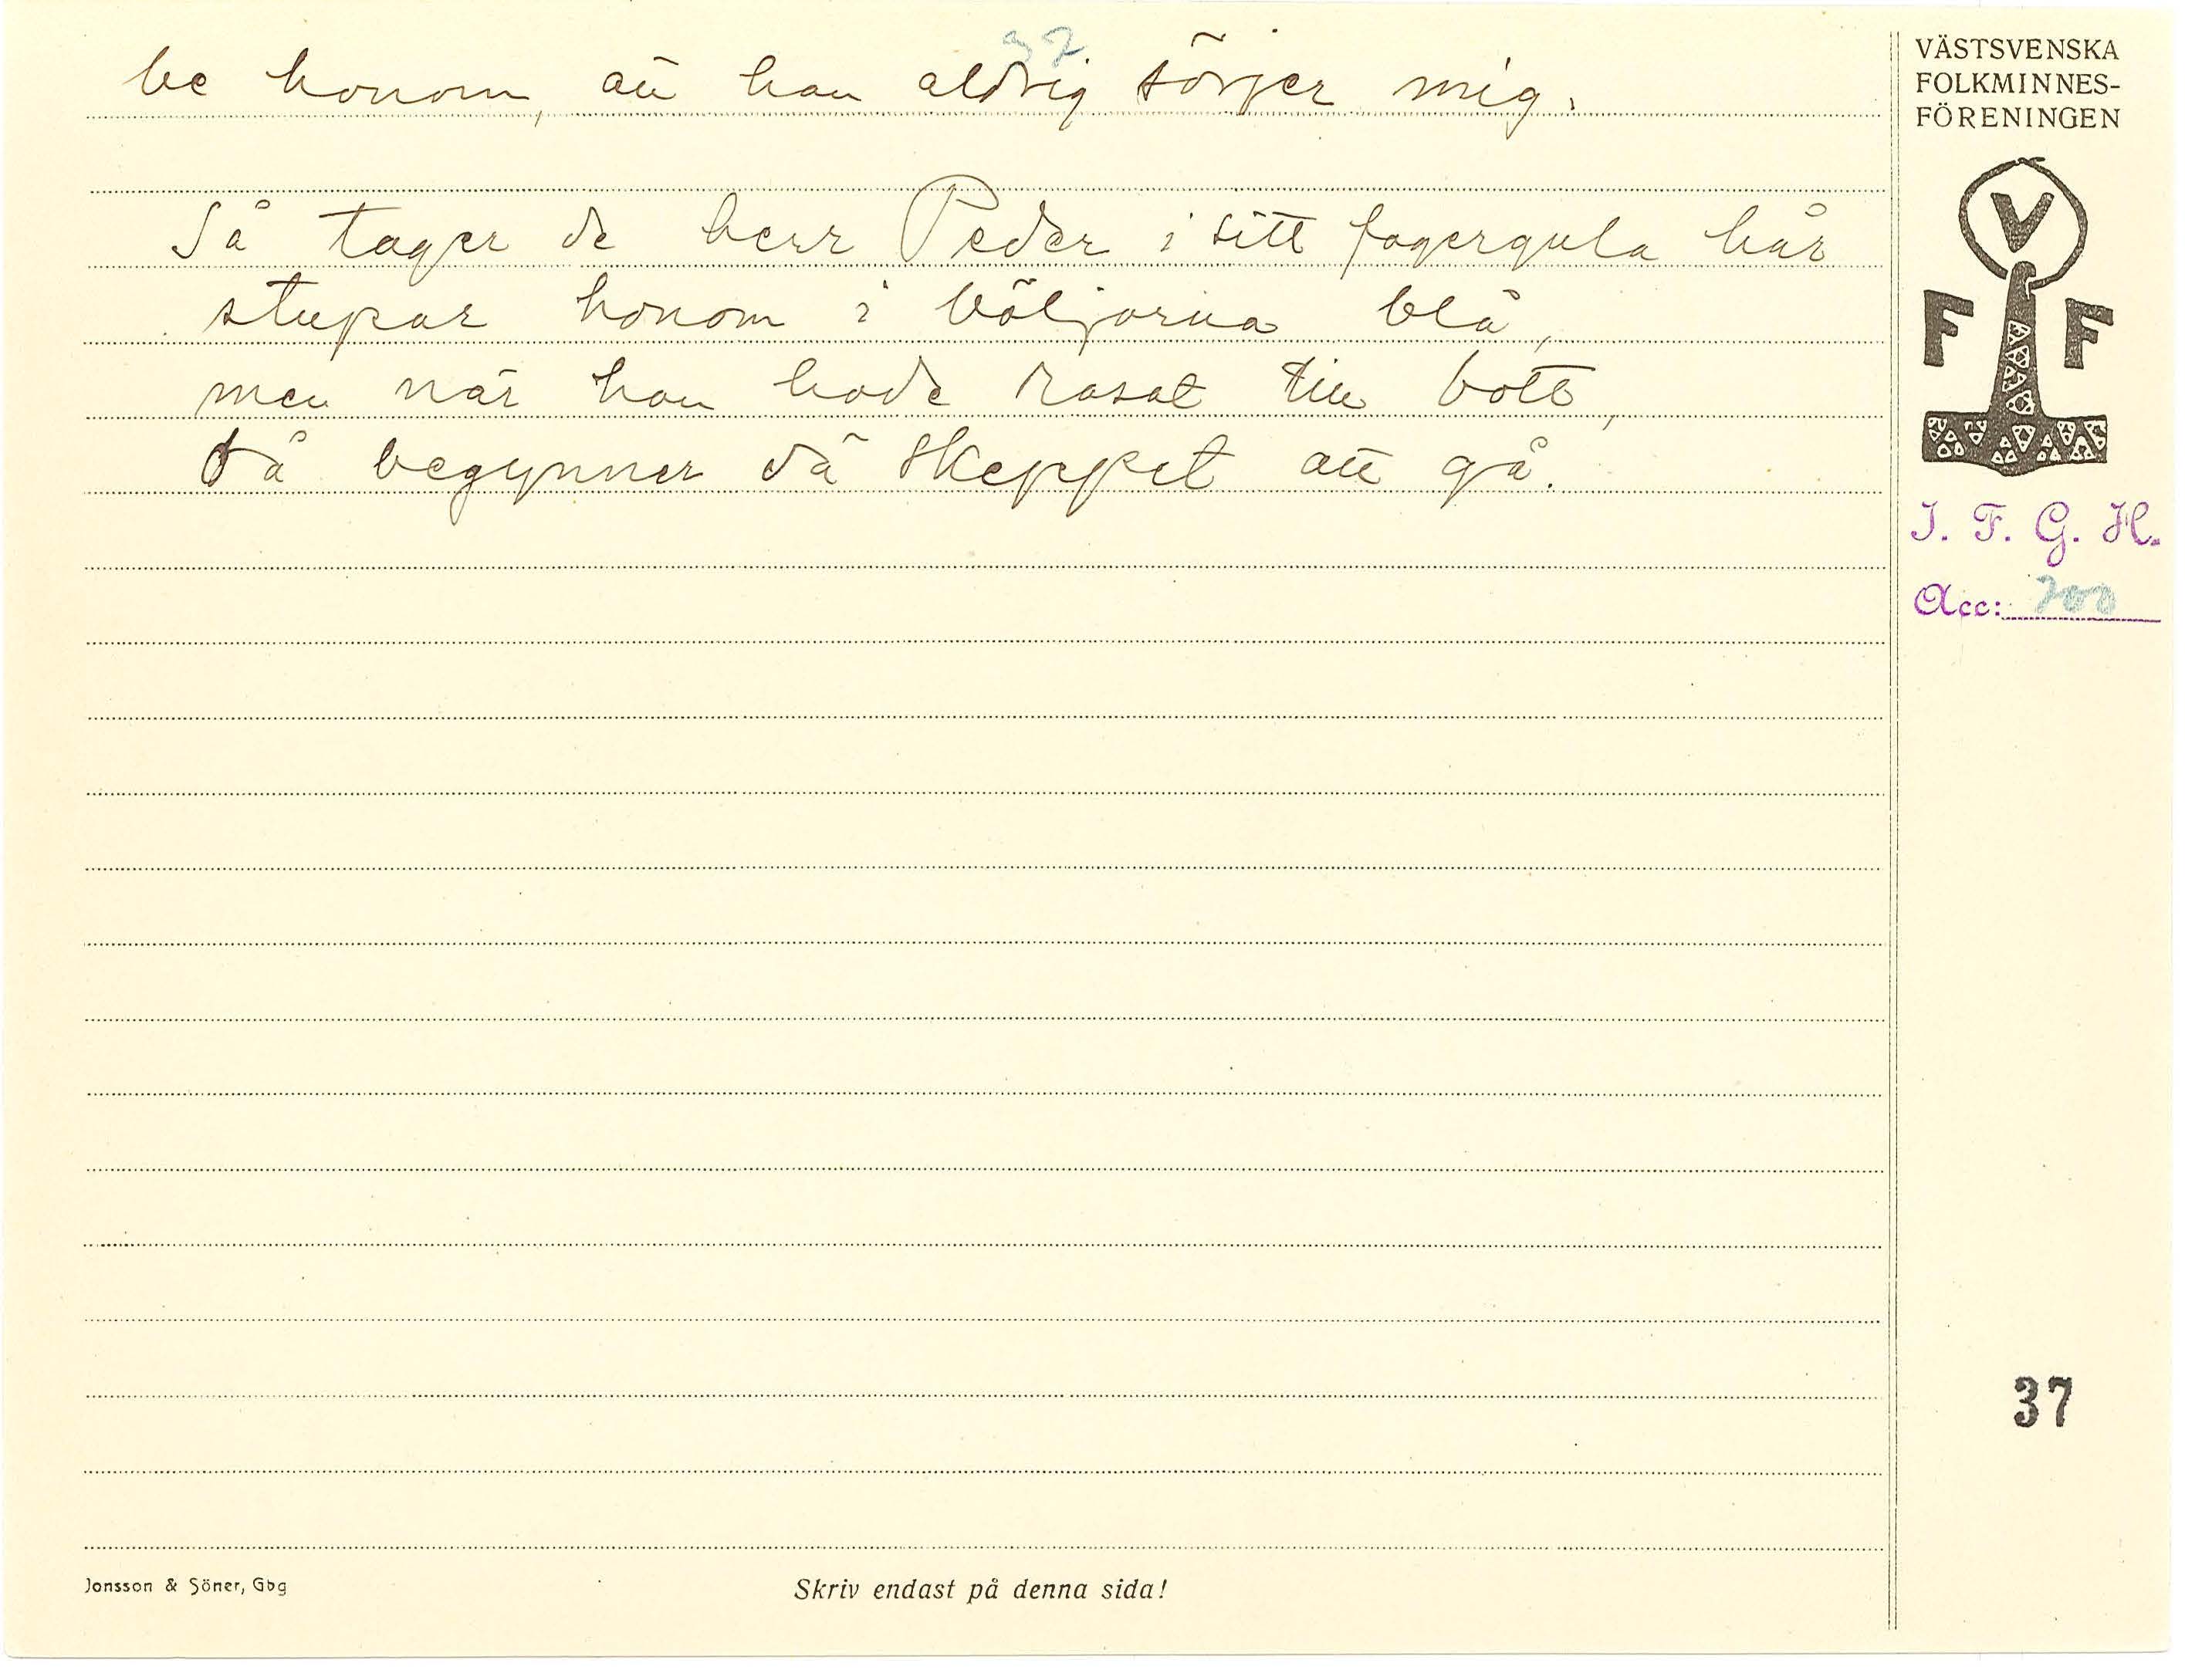 37
be honom, att han aldrig sörjer mig.
Så tager de herr Peder i sitt fagergula hår
stupar honom i böljorna blå,
men när han hade rasat till bott,
då begynner då skeppet att gå.
VÄSTSVENSKA
FOLKMINNES-
FÖRENINGEN
V
F F
I. F. G. H.
Acc: 200
37
Jonsson & Söner, Gbg
Skriv endast på denna sida!